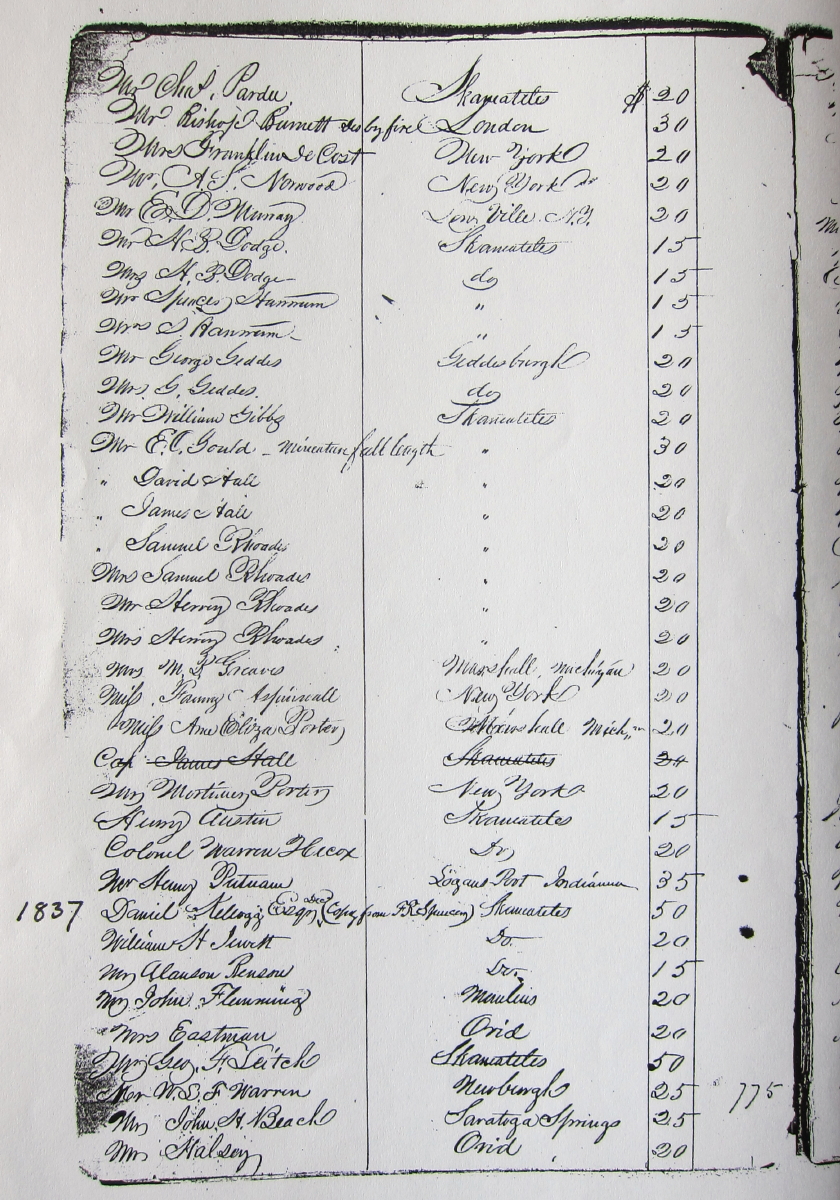 Mr Chas. Pardee Skaneateles $ 20
Mr Bishop Burnett des by fire London 30
Mrs Franklin De Cost New York 20
Mr. A. S. Norwood New York do 20
Mr E. D. Murray Low Ville N.Y. 20
Mr H. B. Dodge. Skaneateles 15
Mrs H. B. Dodge do 15
Mr Spencer Hannum " 15
Mrs S. Hannum " 15
Mr George Geddes Geddesburgh 20
Mrs. G. Geddes. do 20
Mr William Gibbs Skaneateles 20
Mr E. C. Gould - Minature full length " 30
" David Hall " 20
" James Hall " 20
" Samuel Rhoades " 20
Mrs Samuel Rhoades " 20
Mr Henry Rhoades " 20
Mrs Henry Rhoades " 20
Mrs M. Greaves Marshall, Michigan 20
Miss. Fanny Aspinwall New York 20
Miss Ame Eliza Porter Marshall Mich" 20
Cap James Hall Skaneateles 20
Mr Mortimer Porter New York 20
Henry Austin Skaneateles 15
Colonel Warren Hecox Do 20
Mr Henry Putnam Logans Port Indianna 35
1837 Daniel Kellogg Esqr Decd (Copy from F.R. Spencer) Skaneateles 50
William H Jewett Do 20
Mr Alanson Benson Do. 15
Mr John Flemming Manlius 20
Mrs Eastman Ovid 20
Mr Geo. F. Leitch Skaneateles 50
Mr W. S. F Warren Newburgh 25 775
Mr John H. Beach Saratoga Springs 25
Mr Halsey Ovid 20